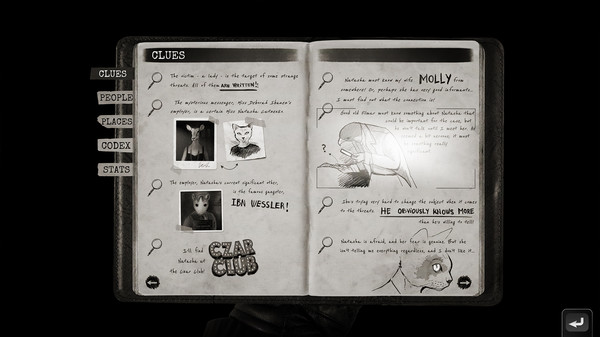 CLUES
CLUES
PEOPLE
PLACES
CODEX
STATS
The victim - a lady - is the target of some strange
threats. All of them are written!
The mysterious messenger, Miss Deborah
employer, is a certain Miss Natasha
The employer, Natasha's current significant other,
is the famous gangster,
IBN WESSLER!
I'll find
Natasha at
the Czar Club!
CZAR
CLUB
Natasha must know my wife MOLLY from
somewhere! Or, perhaps she has very good informants.
I must find out what the connection is!
Good old must know something about Natasha that
could be important for the case, but
he don't talk until I
it must
something really
?
She's trying very hard to change the subject when it comes
to the threats. HE OBVIOUSLY KNOWS MORE
than he's willing to tell!
Natasha is afraid, and her fear is genuine. But she
isn't telling me everything regardless, and I don't like it.